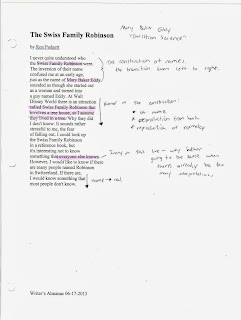 Mary Baker Eddy
"Christian Science"
The Swiss Family Robinson
by Ron Padgett
I never quite understood who
the Swiss Family Robinson were.
The invention of their name
confused me at an early age,
just as the name of Mary Baker Eddy
sounded as though she started out
as a woman and turned into
a guy named Eddy. At Walt
Disney World there is an attraction
called Swiss Family Robinson that
involves a tree house, so I assume
they lived in a tree. Why they did
I don't know. It sounds rather
stressful to me, the fear
of falling out. I could look up
the Swiss Family Robinson
in a reference book, but
it's interesting not to know
something that everyone else knows.
However, I would like to know if there
are many people named Robinson
in Switzerland. If there are,
I would know something that
most people don't know.
The construction of names.
the transition from left to right.
on the construction
on name
reproduction
reproduction of
this line - why bother
going to be used when
there already be too
many
name → real
Writer's Almanac 06-17-2013